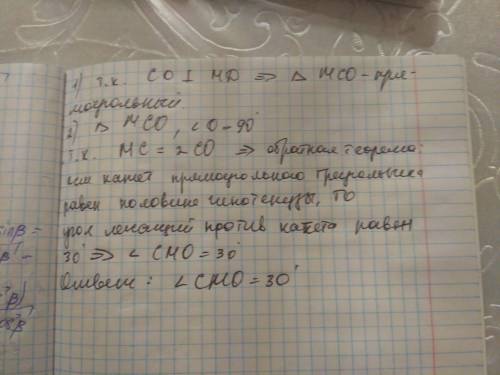 1) т.к. CO ⊥ MD => △ MCO - пря-
моугольный.
2) △ MCO, ∠O - 90°
т.к. MC = 2CO => обратная теорема:
если катет прямоугольного треугольника
равен половине гипотенузы, то
угол лежащий против катета равен
30° => ∠CMO = 30°
Ответ: ∠CMO = 30°